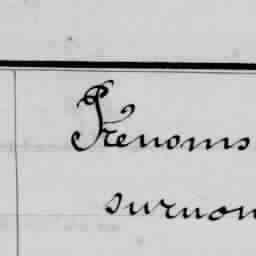 Prénoms
surnom